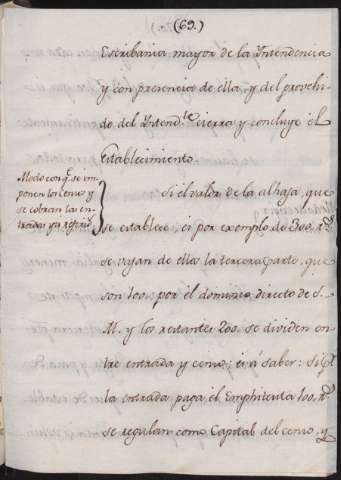 (69.)
Escribania mayor de la Yntendencia
y con presencia de ella, y del provehi-
do del Yntend.te cierra y concluye el
Establecimiento.
Modo con q.e se im-
ponen los censos y
se cobran las en-
tradas ya referid.
Si el valor de la alhaja, que
se establece, es por exemplo de 300. #
se vajan de ellas la tercera parte, que
son 100. por el dominio directo de S.
M. y los restantes 200. se dividen en-
tre entrada y censo; es á saber: Si p.r
la entrada paga el Emphiteuta 100. #
se regulan como Capital del censo, y